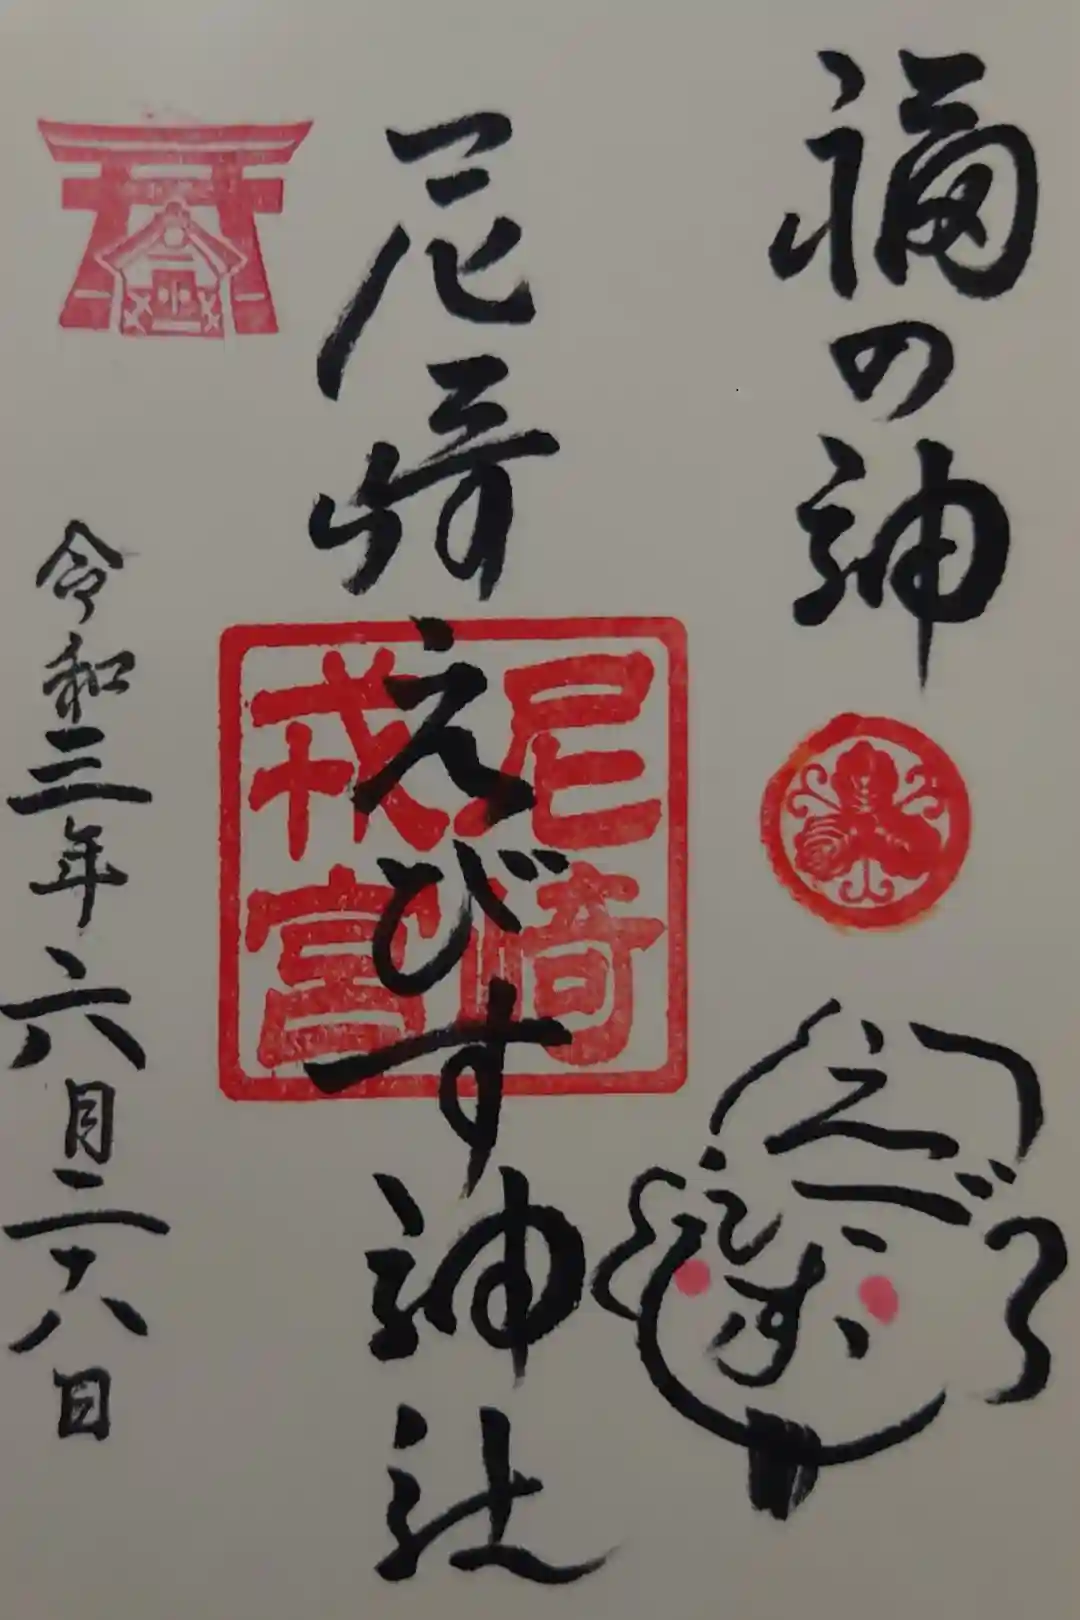 福の神
えびす
尼崎えびす神社
尼崎
戎宮
令和三年六月二六日